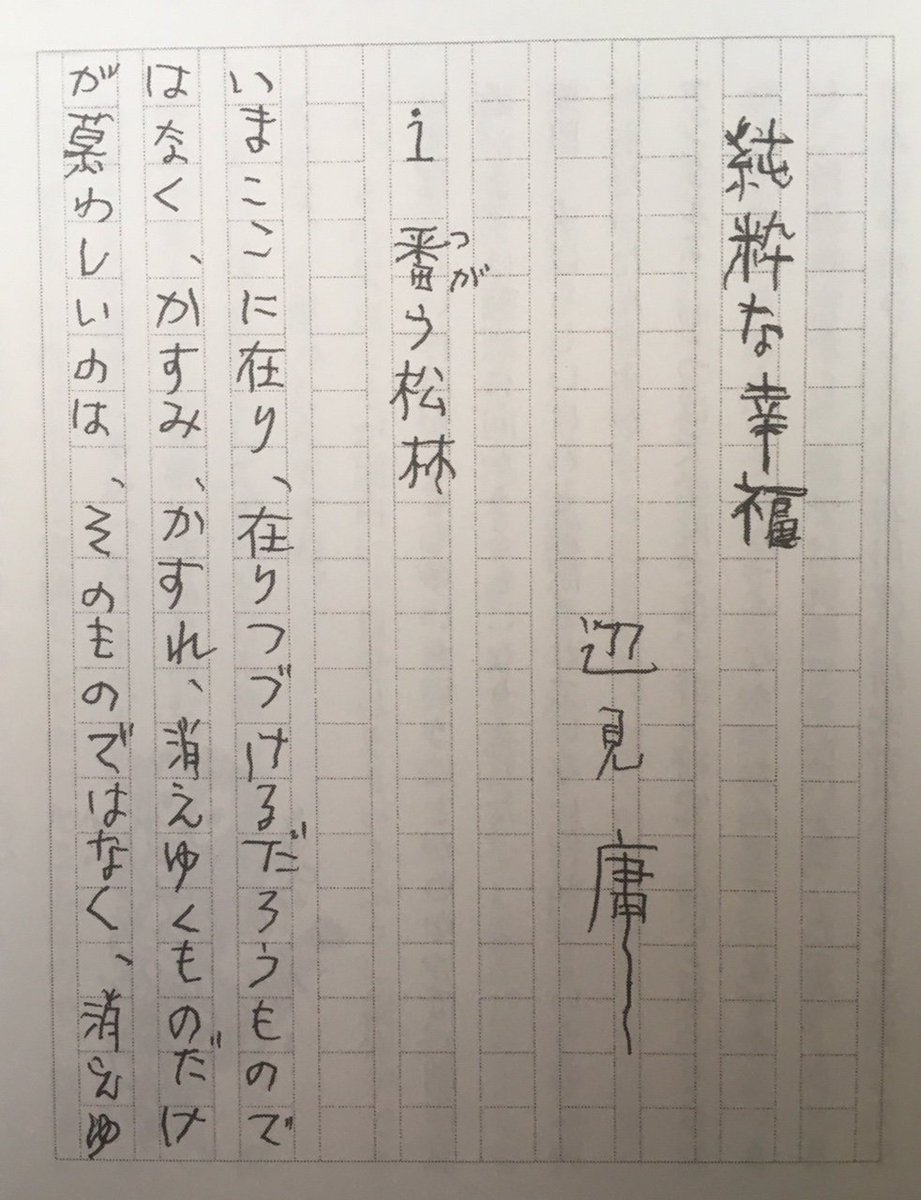 純粋な幸福
辺見 庸
i 番う松林
つが
いまここに在り、在りつづけるだろうもので
はなく、かすみ、かすれ、消えゆくものだけ
が慕わしいのは、そのものではなく、消えゆ